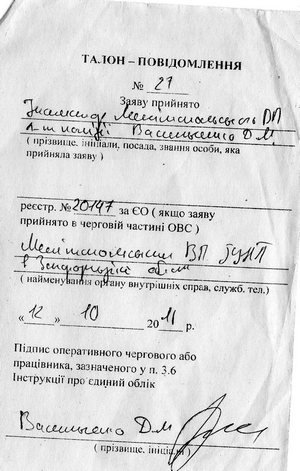 ТАЛОН – ПОВІДОМЛЕННЯ
№ 27
Заяву прийнято
Мелітопольського ВП
л-т поліції Васильченко Д.М.
( прізвище, ініціали, посада, звання особи, яка
прийняла заяву )
реєстр. №20197 за ЄО ( якщо заяву
прийнято в черговій частині ОВС )
Мелітопольським ВП ГУНП
в Запорізькій обл
( найменування органу внутрішніх справ, служб. тел.)
« 12 » 10 2011 р.
Підпис оперативного чергового або
працівника, зазначеного у п. 3.6
Інструкції про єдиний облік
Васильченко Д.М
( прізвище, ініціали )